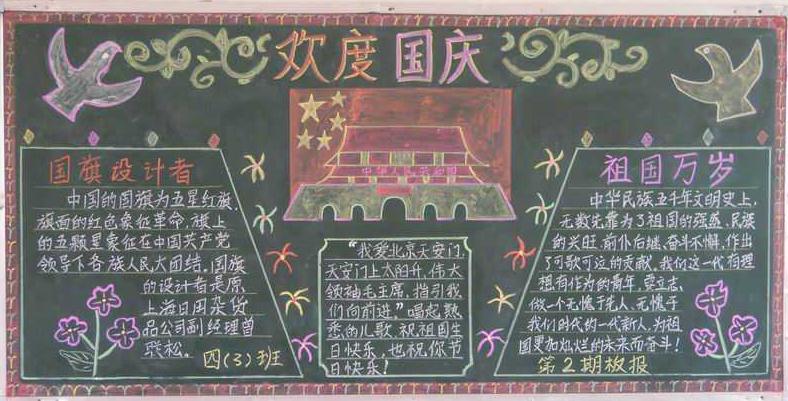 欢度国庆
国旗设计者
中国的国旗为五星红旗,
旗面的红色象征革命,旗上
的五颗星象征在中国共产党
领导下各族人民大团结。国旗
的设计者是原
上海日用杂货
品公司副经理曾
联松。
四(3)班
中华人民共和国
“我爱北京天安门,
天安门上太阳升,伟大
领袖毛主席,指引我
们向前进。”唱起熟
悉的儿歌,祝祖国生
日快乐,也祝你节
日快乐!
祖国万岁
中华民族五千年文明史上,
无数先辈为了祖国的强盛、民族
的兴旺,前仆后继、奋斗不懈,作出
了可歌可泣的贡献。我们这一代有理
想有作为的青年,要立志,
做一个无愧于先人、无愧于
我们时代的一代新人,为祖
国更加灿烂的未来而奋斗!
第2期板报